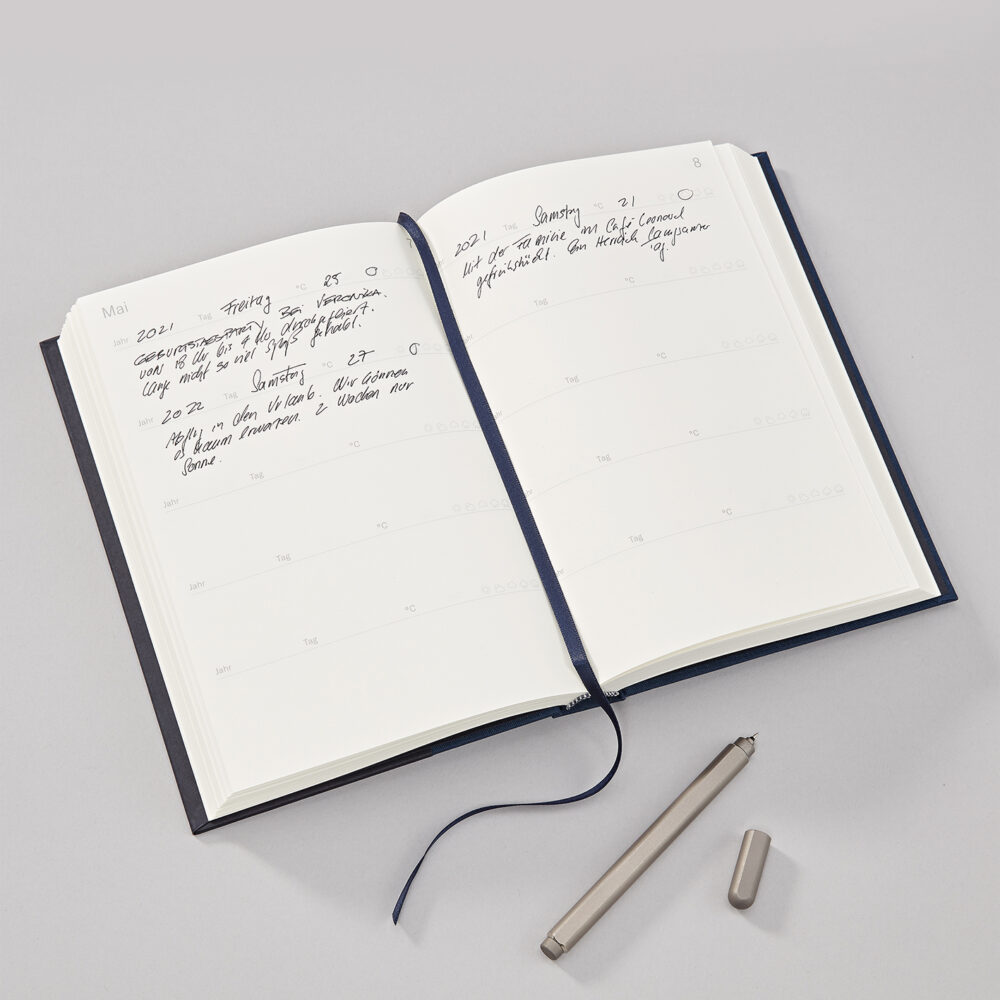 Mai
Jahr 2021 Tag Freitag °C 25
GEBURTSTAGSPARTY BEI VERONIKA.
VON 18 Uhr bis 4 Uhr durchgefeiert.
Lange nicht so viel Spaß gehabt.
Jahr 2022 Samstag 27 °C
Abflug in den Urlaub. Wir können
es kaum erwarten. 2 Wochen nur
Sonne.
Jahr Tag °C
Jahr Tag °C
Jahr Tag °C
8
2021 Tag Samstag °C 21
Mit der Familie im Café Leonard
gefrühstückt. Ein Herrlich Langsamer
Tag.
Tag °C
Tag °C
Tag °C
Tag °C